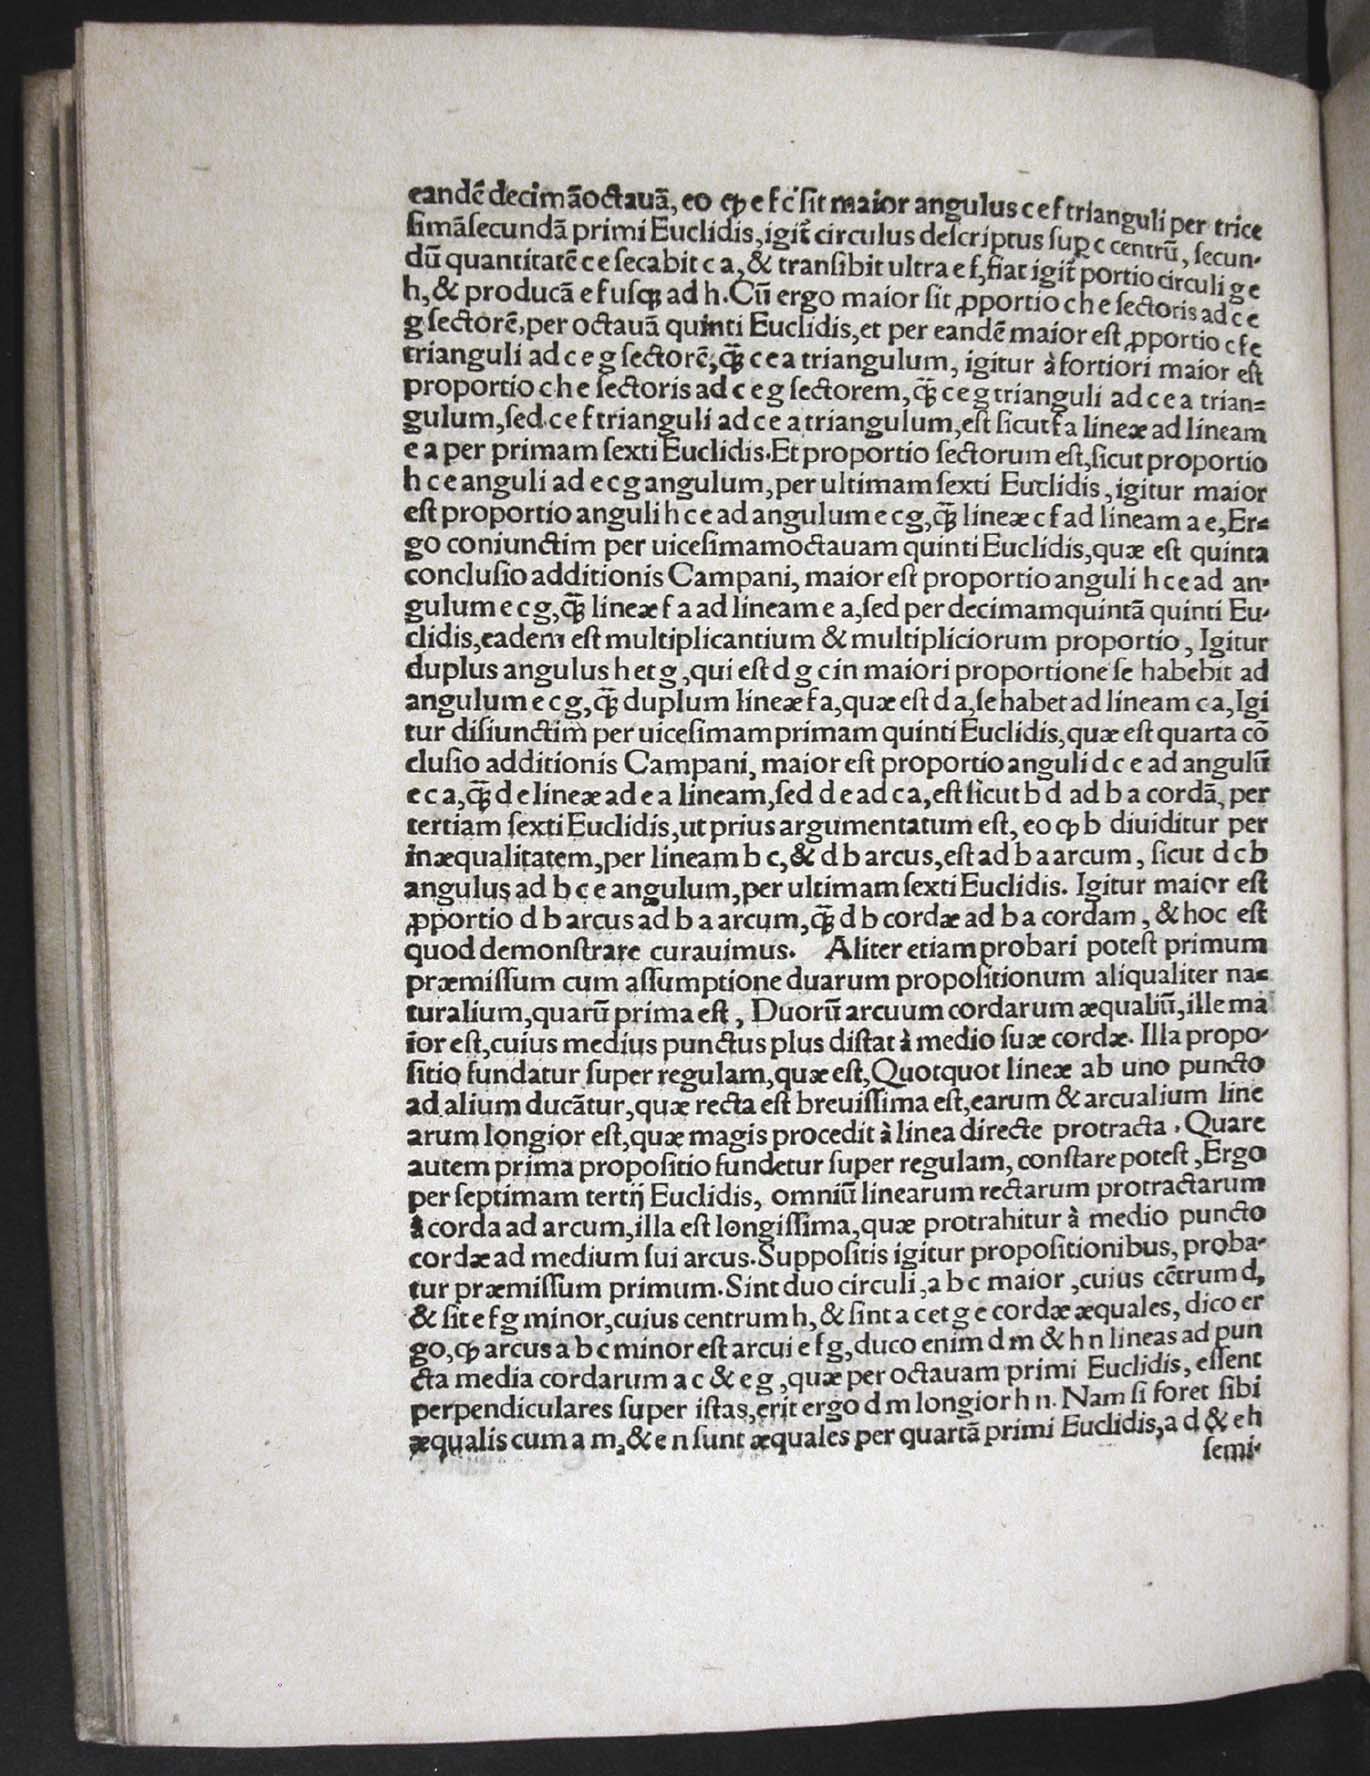 eandē decimāoctauā, eo ꝙ e f c ſit maior angulus c e f trianguli per trice
ſimāſecundā primi Euclidis, igit̃ circulus deſcriptus ſuꝑ c centrū, ſecun-
dū quantitatē c e ſecabit c a, & tranſibit ultra e f, fiat igit̃ portio circuli g e
h, & producā e f uſqꝫ ad h. Cū ergo maior ſit ꝓportio c h e ſectoris ad c e
g ſectorē, per octauā quinti Euclidis, et per eandē maior eſt ꝓportio c f e
trianguli ad c e g ſectorē, q̄ꝫ c e a triangulum, igitur à fortiori maior eſt
proportio c h e ſectoris ad c e g ſectorem, q̄ꝫ c e g trianguli ad c e a trian=
gulum, ſed c e f trianguli ad c e a triangulum, eſt ſicut f a lineæ ad lineam
e a per primam ſexti Euclidis. Et proportio ſectorum eſt, ſicut proportio
h c e anguli ad e c g angulum, per ultimam ſexti Euclidis, igitur maior
eſt proportio anguli h c e ad angulum e c g, q̄ꝫ lineæ c f ad lineam a e, Er=
go coniunctim per uiceſimamoctauam quinti Euclidis, quæ eſt quinta
concluſio additionis Campani, maior eſt proportio anguli h c e ad an-
gulum e c g, q̄ꝫ lineæ f a ad lineam e a, ſed per decimamquintā quinti Eu-
clidis, eadem eſt multiplicantium & multipliciorum proportio, Igitur
duplus angulus h et g, qui eſt d g c in maiori proportione ſe habebit ad
angulum e c g, q̄ꝫ duplum lineæ f a, quæ eſt d a, ſe habet ad lineam c a, Igi
tur diſiunctim per uiceſimamprimam quinti Euclidis, quæ eſt quarta cō
cluſio additionis Campani, maior eſt proportio anguli d c e ad angulū
e c a, q̄ꝫ d e lineæ ad e a lineam, ſed d e ad c a, eſt ſicut b d ad b a cordā, per
tertiam ſexti Euclidis, ut prius argumentatum eſt, eo ꝙ b diuiditur per
inæqualitatem, per lineam b c, & d b arcus, eſt ad b a arcum, ſicut d c b
angulus ad b c e angulum, per ultimam ſexti Euclidis. Igitur maior eſt
ꝓportio d b arcus ad b a arcum, q̄ꝫ d b cordæ ad b a cordam, & hoc eſt
quod demonſtrare curauimus. Aliter etiam probari poteſt primum
præmiſſum cum aſſumptione duarum propoſitionum aliqualiter na=
turalium, quarū prima eſt, Duorū arcuum cordarum æqualiū, ille ma
ior eſt, cuius medius punctus plus diſtat à medio ſuæ cordæ. Illa propo-
ſitio fundatur ſuper regulam, quæ eſt, Quotquot lineæ ab uno puncto
ad alium ducātur, quæ recta eſt breuiſſima eſt, earum & arcualium line
arum longior eſt, quæ magis procedit à linea directe protracta. Quare
autem prima propoſitio fundetur ſuper regulam, conſtare poteſt, Ergo
per ſeptimam tertij Euclidis, omniū linearum rectarum protractarum
à corda ad arcum, illa eſt longiſſima, quæ protrahitur à medio puncto
cordæ ad medium ſui arcus. Suppoſitis igitur propoſitionibus, proba-
tur præmiſſum primum. Sint duo circuli, a b c maior, cuius cētrum d,
& ſit e f g minor, cuius centrum h, & ſint a c et g e cordæ æquales, dico er
go, ꝙ arcus a b c minor eſt arcui e f g, duco enim d m & h n lineas ad pun
cta media cordarum a c & e g, quæ per octauam primi Euclidis, eſſent
perpendiculares ſuper iſtas, erit ergo d m longior h n. Nam ſi foret ſibi
æqualis cum a m, & e n ſunt æquales per quartā primi Euclidis, a d & e h
ſemi-